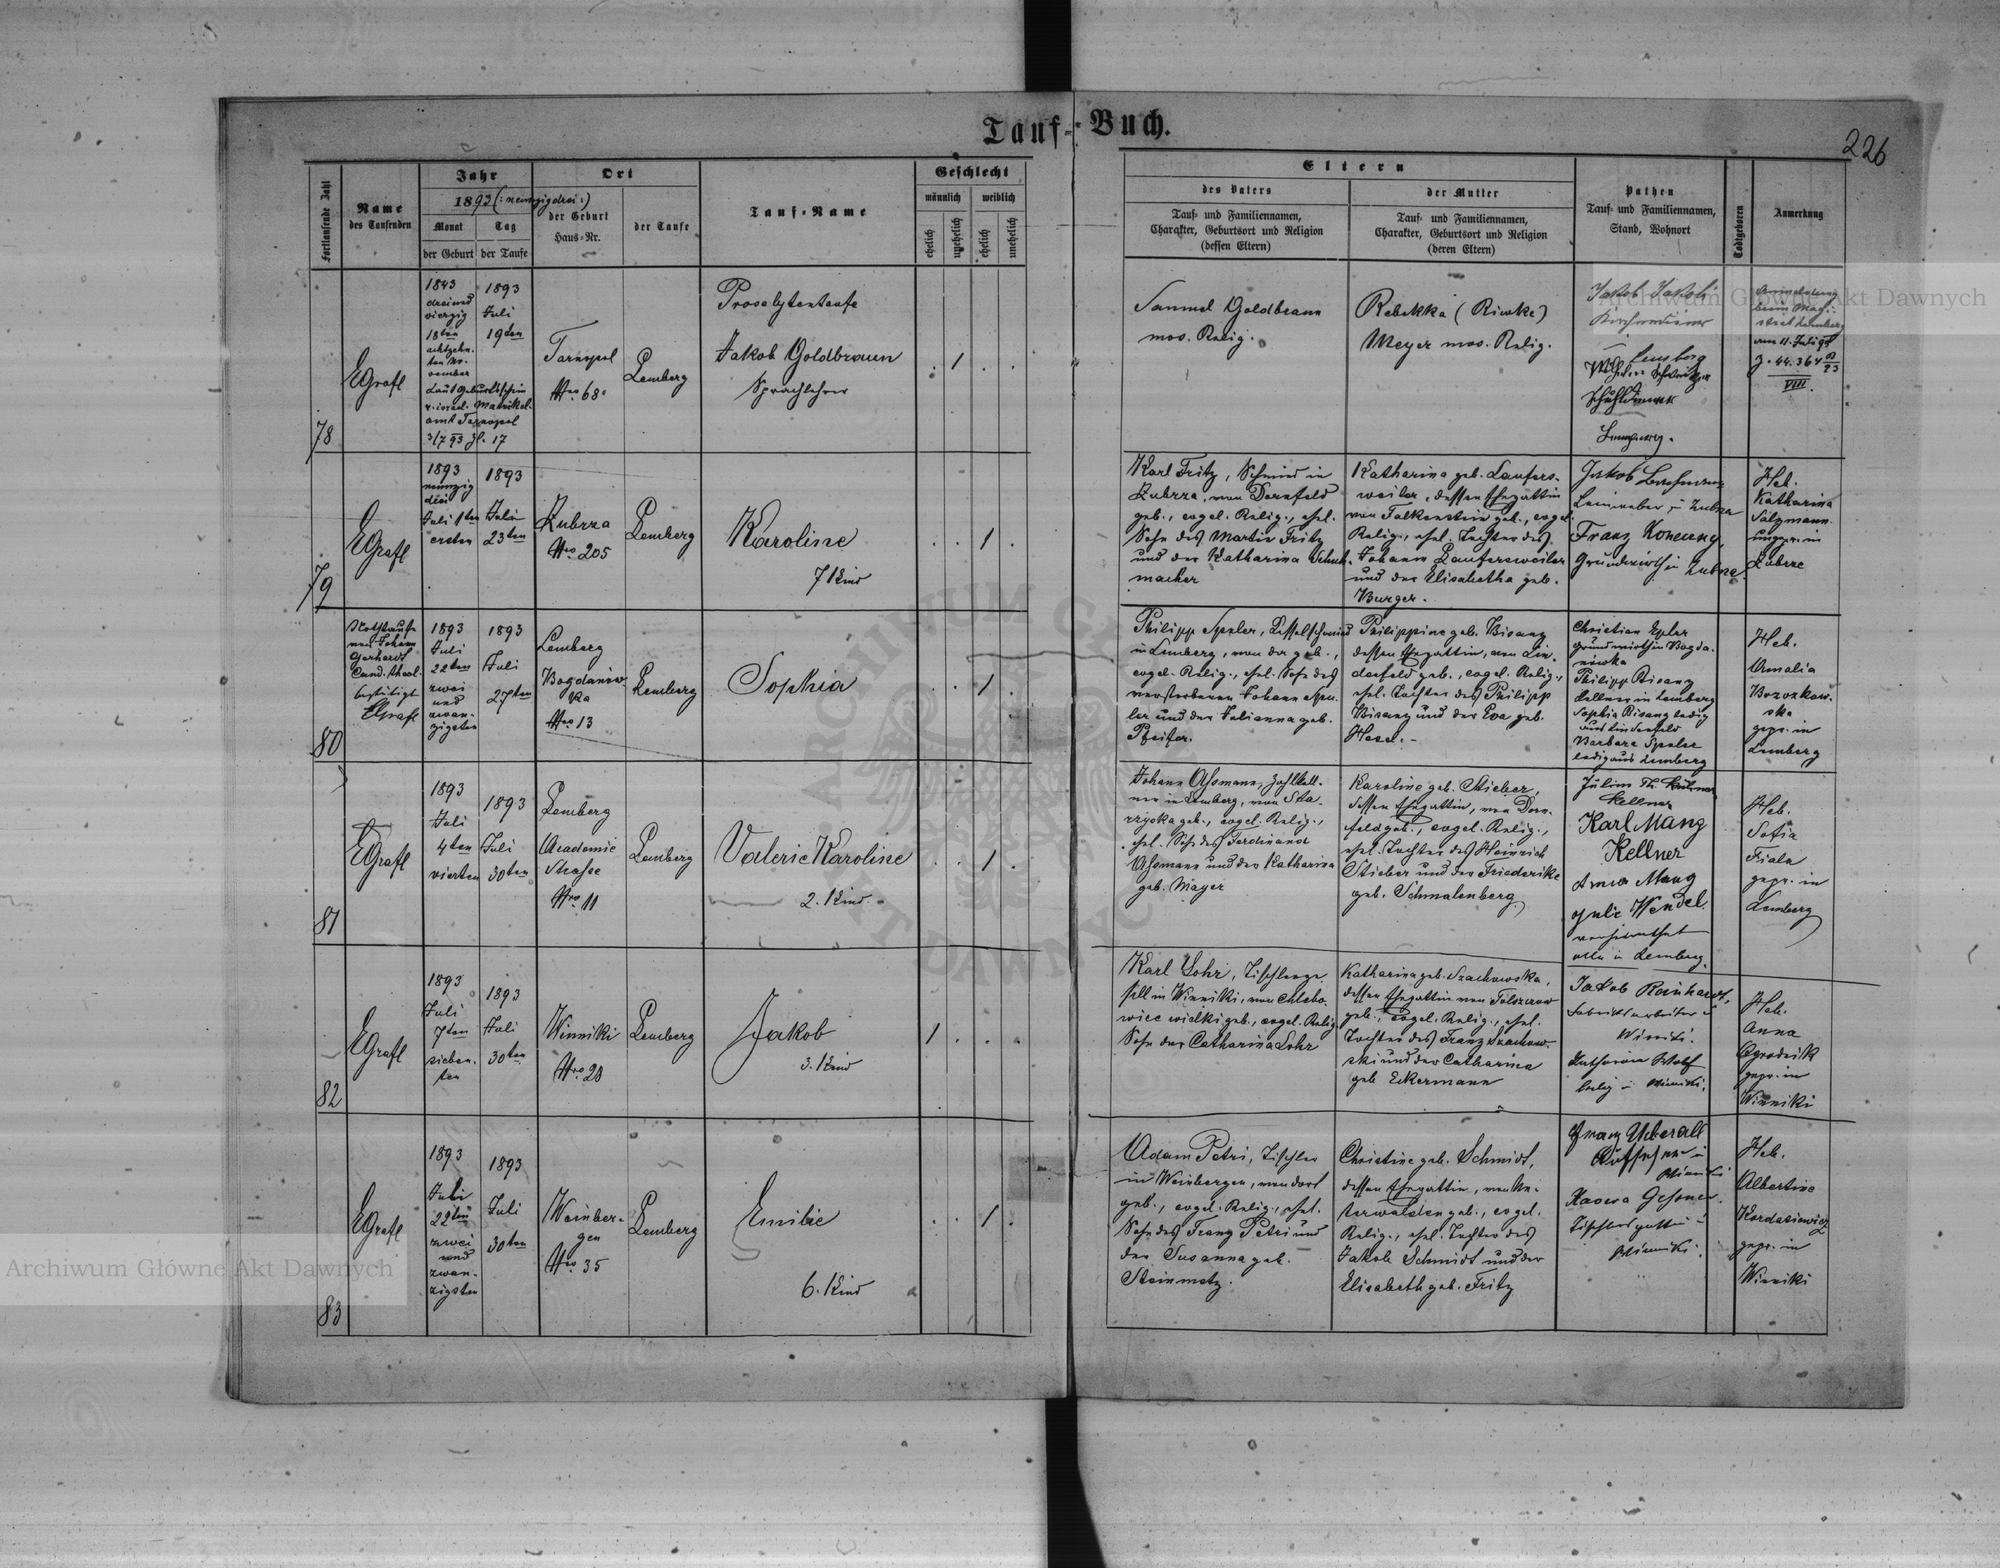 Tauf-Buch.
226
Fortlaufende Zahl
Name
des Taufenden
Jahr
1893 (: neunzigdrei :)
Monat
Tag
der Geburt
der Taufe
Ort
der Geburt
Haus-Nr.
der Taufe
Tauf-Name
Geschlecht
männlich
weiblich
ehelich
unehelich
ehelich
unehelich
Eltern
des Vaters
Tauf- und Familiennamen,
Charakter, Geburtsort und Religion
(dessen Eltern)
der Mutter
Tauf- und Familiennamen,
Charakter, Geburtsort und Religion
(deren Eltern)
Pathen
Tauf- und Familiennamen,
Stand, Wohnort
Todtgeboren
Anmerkung
78
EGrafl
1843
dreiund
vierzig
18ten
achtzehn-
ten No-
vember
Laut Geburtsschein
v. israel. Matrikel-
amt Tarnopol
3/7 93 Zl. 17
1893
Juli
19ten
Tarnopol
Nro 68
Lemberg
Proselytentaufe
Jakob Goldbraun
Sprachlehrer
. 1 . .
Samuel Goldbraun
mos. Relig.
Rebekka (Riwke)
Meyer mos. Relig.
Jakob Jakobi
Kirchendiener
Lemberg
Lemberg.
Anmeldung
beim Magi-
strat Lemberg
am 11. Juli 93
VIII.
79
EGrafl
1893
neunzig
drei
Juli 1ten
ersten
1893
Juli
23ten
Zubrza
Nro 205
Lemberg
Karoline
7 Kind
. . 1 .
Karl Fritz, Schmied in
Zubrza, von Dornfeld
geb., evgel. Relig., ehel.
Sohn des Martin Fritz
und der Katharina Schuh-
macher
Katharina geb. Laufers-
weiler, dessen Ehegattin
von Falkenstein geb., evgel.
Relig., ehel. Tochter des
Johann Laufersweiler
und der Elisabetha geb.
Burger.
Jakob Bachmann
Leinweber in Zubrza
Franz Konewny,
Grundwirth in Zubrza.
Heb.
Katharina
Salzmann
ungepr. in
Zubrza
80
Nothtaufe
von Johann
Gerhardt
Cand. theol.
bestätigt
EGrafl
1893
Juli
22ten
zwei
und
zwan-
zigsten
1893
Juli
27ten
Lemberg
Bogdanow-
ka
Nro 13
Lemberg
Sophia
. . 1 .
Philipp Speler, Kesselschmied
in Lemberg, von da geb.,
evgel. Relig., ehel. Sohn des
verstorbenen Johann Spe-
ler und der Julianna geb.
Pfeifer.
Philippine geb. Bisanz
dessen Ehegattin, von Lin-
denfeld geb., evgel. Relig.,
ehel. Tochter des Philipp
Bisanz und der Eva geb.
Hesel. -
Christian Epler
Grundwirth in Bogda-
nowka
Philipp Bisanz
Kellner in Lemberg
Sophia Bisanz ledig
aus Lindenfeld
Barbara Speler
ledig aus Lemberg
Heb.
Amalia
Brzozkow-
ska
gepr. in
Lemberg
81
EGrafl
1893
Juli
4ten
vierten
1893
Juli
30ten
Lemberg
Academie
Strasse
Nro 11
Lemberg
Valerie Karoline
2. Kind.
. . 1 .
Johann Assmann, Zahlkell-
ner in Lemberg, von Sta-
rzyska geb., evgel. Relig.,
ehel. Sohn des Ferdinand
Assmann und der Katharina
geb. Mayer
Karoline geb. Stieber,
dessen Ehegattin, von Dorn-
feld geb., evgel. Relig.,
ehel. Tochter des Heinrich
Stieber und der Friederike
geb. Schmalenberg
Julius Th. Kühner
Kellner
Karl Mang
Kellner
Anna Mang
Julie Wendel
verheirathet
alle in Lemberg.
Heb.
Sofia
Fiala
gepr. in
Lemberg
82
EGrafl
1893
Juli
7ten
sieben-
ten
1893
Juli
30ten
Winniki
Nro 20
Lemberg
Jakob
3. Kind
1 . . .
Karl Lohr, Tischlerge-
sell in Winniki, von Chlebo-
wice wielki geb., evgel. Relig.
Sohn der Catharina Lohr
Katharina geb. Szachowska,
dessen Ehegattin von Tolszczow
geb., evgel. Relig., ehel.
Tochter des Franz Szachow-
ski und der Catharina
geb. Eckermann
Jakob Reinhardt,
Fabriksarbeiter in
Winniki.
Katharina Wolf
ledig in Winniki.
Heb.
Anna
Ogrodnik
gepr. in
Winniki
83
EGrafl
1893
Juli
22ten
zwei
und
zwan-
zigsten
1893
Juli
30ten
Weinber-
gen
Nro 35
Lemberg
Emilie
6. Kind
. . 1 .
Adam Petri, Tischler
in Weinbergen, von dort
geb., evgel. Relig., ehel.
Sohn des Franz Petri und
der Susanna geb.
Steinmetz.
Christine geb. Schmidt,
dessen Ehegattin, von Un-
terwalden geb., evgel.
Relig., ehel. Tochter des
Jakob Schmidt und der
Elisabeth geb. Fritz
Franz Ueberall
Aufseher in
Winniki
Tischlersgattin in
Winniki.
Heb.
Albertine
Kordasiewicz
gepr. in
Winniki
Archiwum Główne Akt Dawnych
Archiwum Główne Akt Dawnych